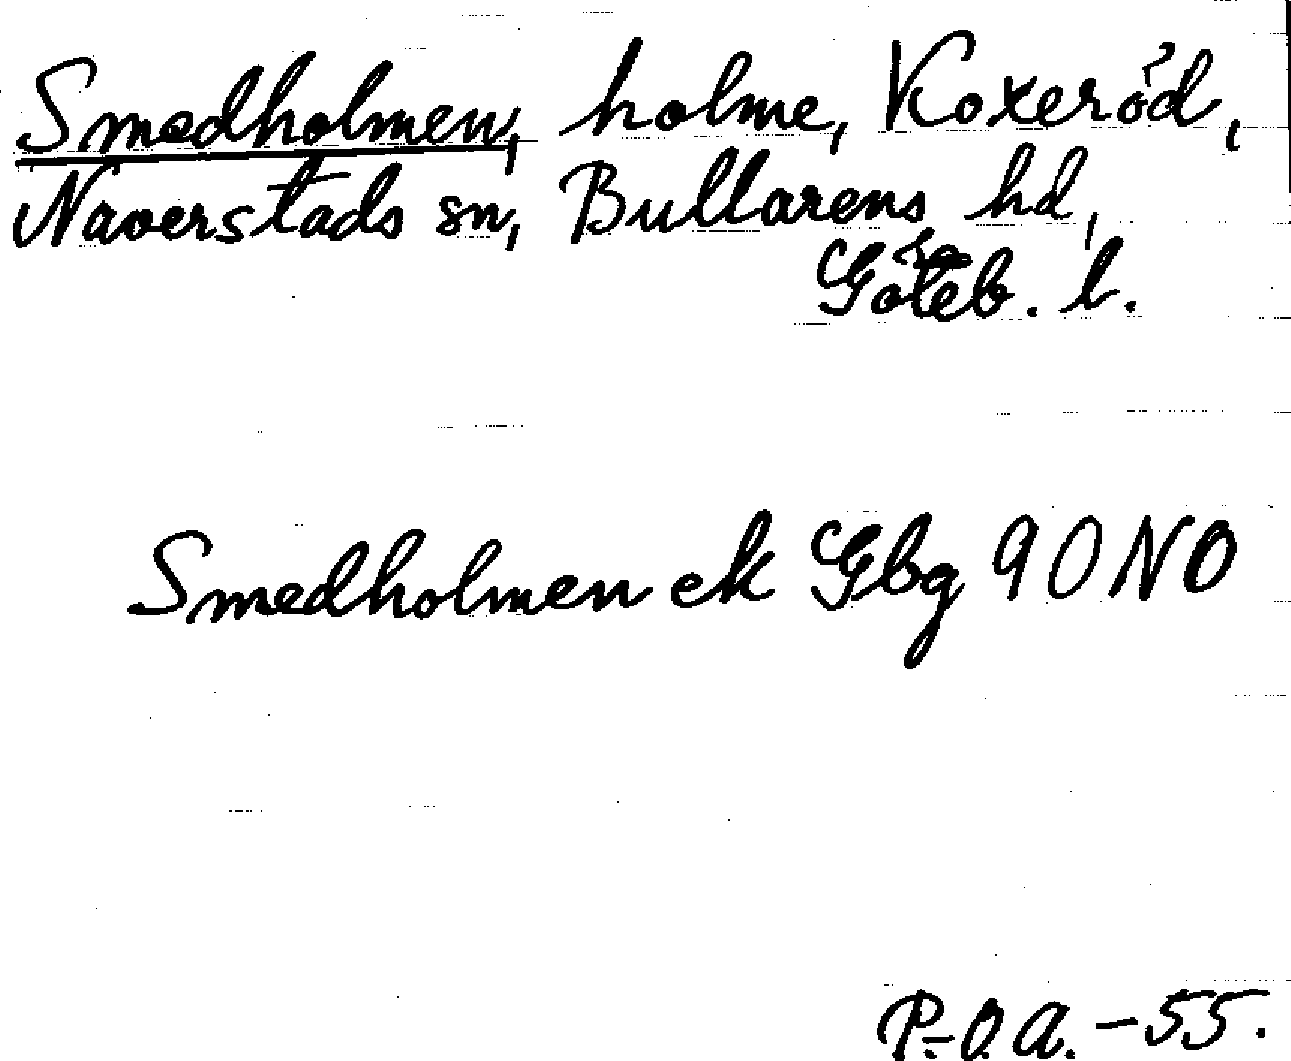 Smedholmen, holme, Koxeröd,
Naverstads sn, Bullarens hd,
Göteb. l.
Smedholmen ek Gbg 90 NO
P.-O. A. - 55.